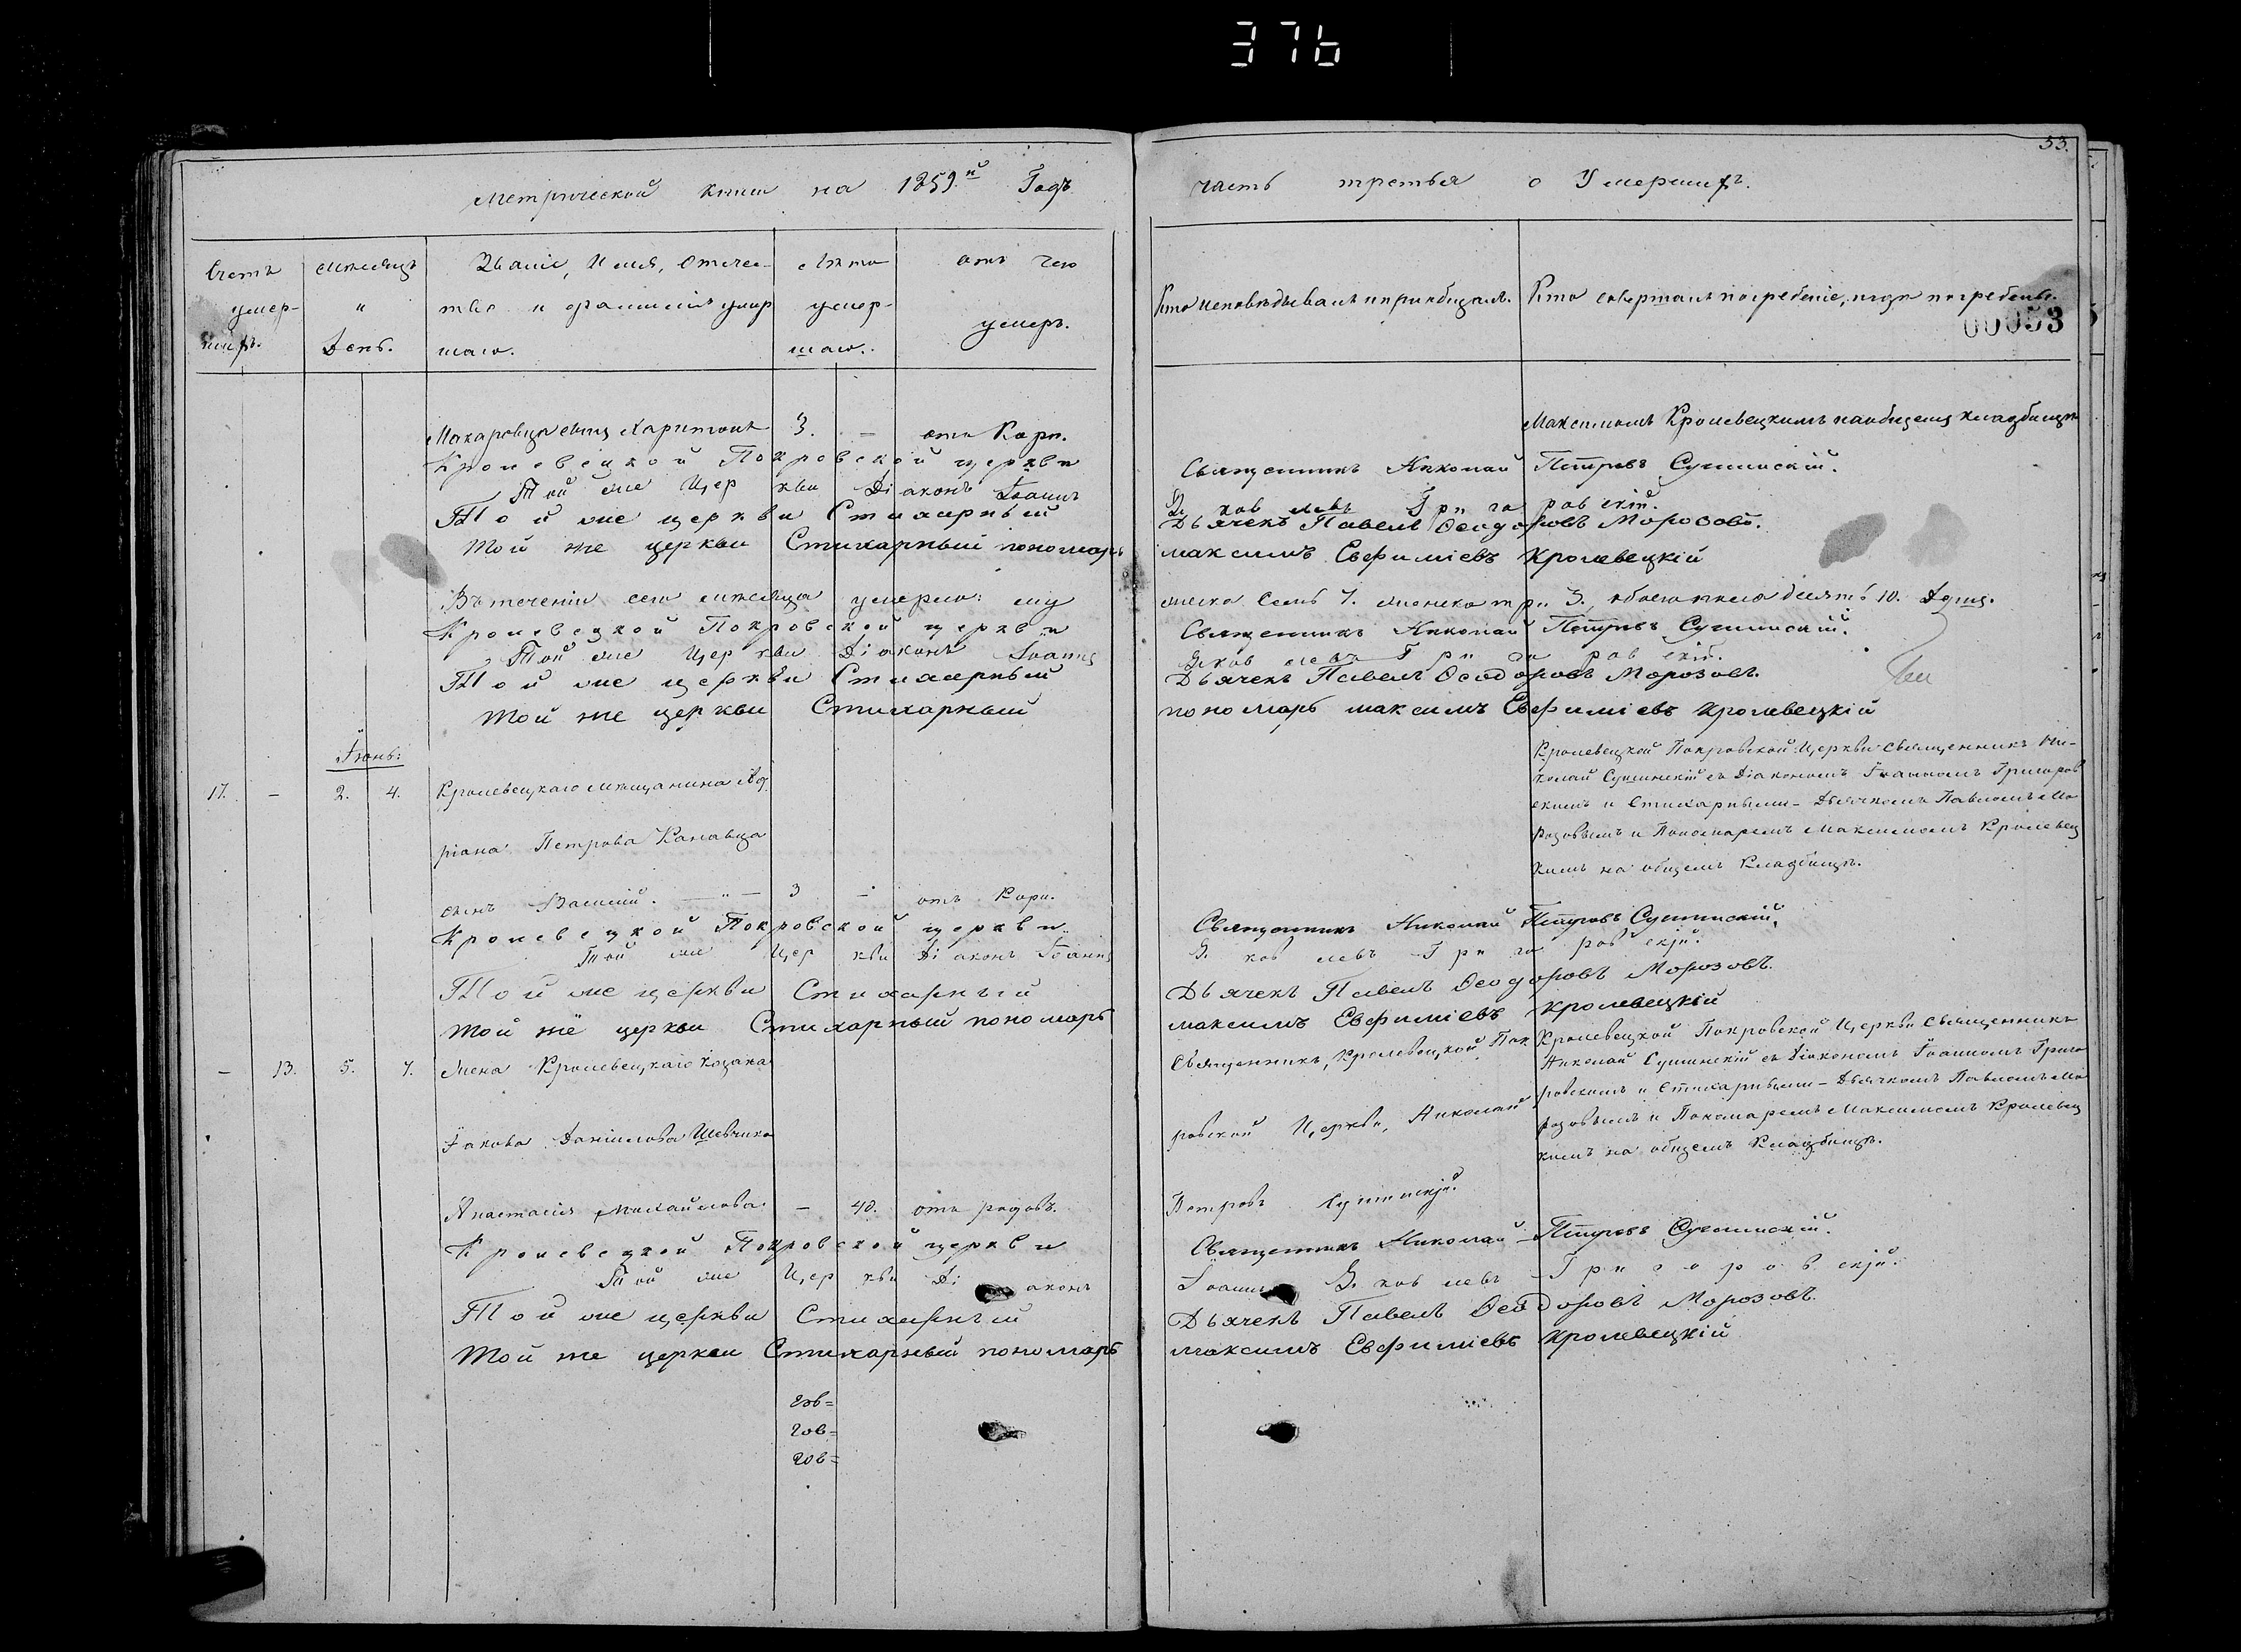 376
53.
Метрической книги на 1859.й Годъ
часть третья о Умершихъ.
Счетъ умер-шихъ.
Мѣсяцъ и День.
Званіе, Имя, Отчес-
тво и фамилія умер
шаго.
Лѣта умер-шаго.
отъ чего умеръ.
Кто исповѣдывалъ и пріобщалъ.
Кто совершалъ погребеніе, и гдѣ погребены.
00053
Макаровца сынъ Харитонъ 3. — отъ Кори.
Максимомъ Кролевецкимъ на общемъ кладбищѣ
Кролевецкой Покровской церкви Священникъ Николай Петровъ Сушинскій.
Той же Церкви Діаконъ Іоаннъ Яковлевъ Григоровскій.
Той же церкви Стихарный Дьячекъ Павелъ Ѳеодоровъ Морозовъ.
Той же церкви Стихарный пономарь Максимъ Евфиміевъ Кролевецкій
Въ теченіи сего мѣсяца умерло: му жеска Семь 7. женска три 3., обоего пола десять 10. Душъ.
Кролевецкой Покровской церкви Священникъ Николай Петровъ Сушинскій.
Той же Церкви Діаконъ Іоаннъ Яковлевъ Григоровскій.
Той же церкви Стихарный Дьячекъ Павелъ Ѳеодоровъ Морозовъ.
Той же церкви Стихарный пономарь Максимъ Евфиміевъ Кролевецкій
Іюнь:
17. — 2. 4. Кролевецкаго мѣщанина Ад
ріана Петрова Канавца
сынъ Василій. — " — 3 — отъ Кори.
Кролевецкой Покровской Церкви Священникъ Ни-
колай Сушинскій съ Діакономъ Іоанномъ Григоров
скимъ и Стихарными – Дьячкомъ Павломъ Мо
розовымъ и Пономаремъ Максимомъ Кролевец
кимъ на общемъ Кладбищѣ.
Кролевецкой Покровской церкви Священникъ Николай Петровъ Сушинскій.
Той же Церкви Діаконъ Іоаннъ Яковлевъ Григоровскій.
Той же церкви Стихарный Дьячекъ Павелъ Ѳеодоровъ Морозовъ.
Той же церкви Стихарный пономарь Максимъ Евфиміевъ Кролевецкій
— 13. 5. 7. Жена Кролевецкаго Козака
Іакова Даніилова Шевчика
Анастасія Михайлова — 40. отъ родовъ.
Священникъ, Кролевецкой Пок
ровской Церкви, Николай
Петровъ Сушинскій.
Кролевецкой Покровской Церкви Священникъ
Николай Сушинскій съ Діакономъ Іоанномъ Григо
ровскимъ и Стихарными – Дьячкомъ Павломъ Мо
розовымъ и Пономаремъ Максимомъ Кролевец
кимъ на общемъ Кладбищѣ.
Кролевецкой Покровской церкви Священникъ Николай Петровъ Сушинскій.
Той же Церкви Діаконъ Іоаннъ Яковлевъ Григоровскій.
Той же церкви Стихарный Дьячекъ Павелъ Ѳеодоровъ Морозовъ.
Той же церкви Стихарный пономарь Максимъ Евфиміевъ Кролевецкій